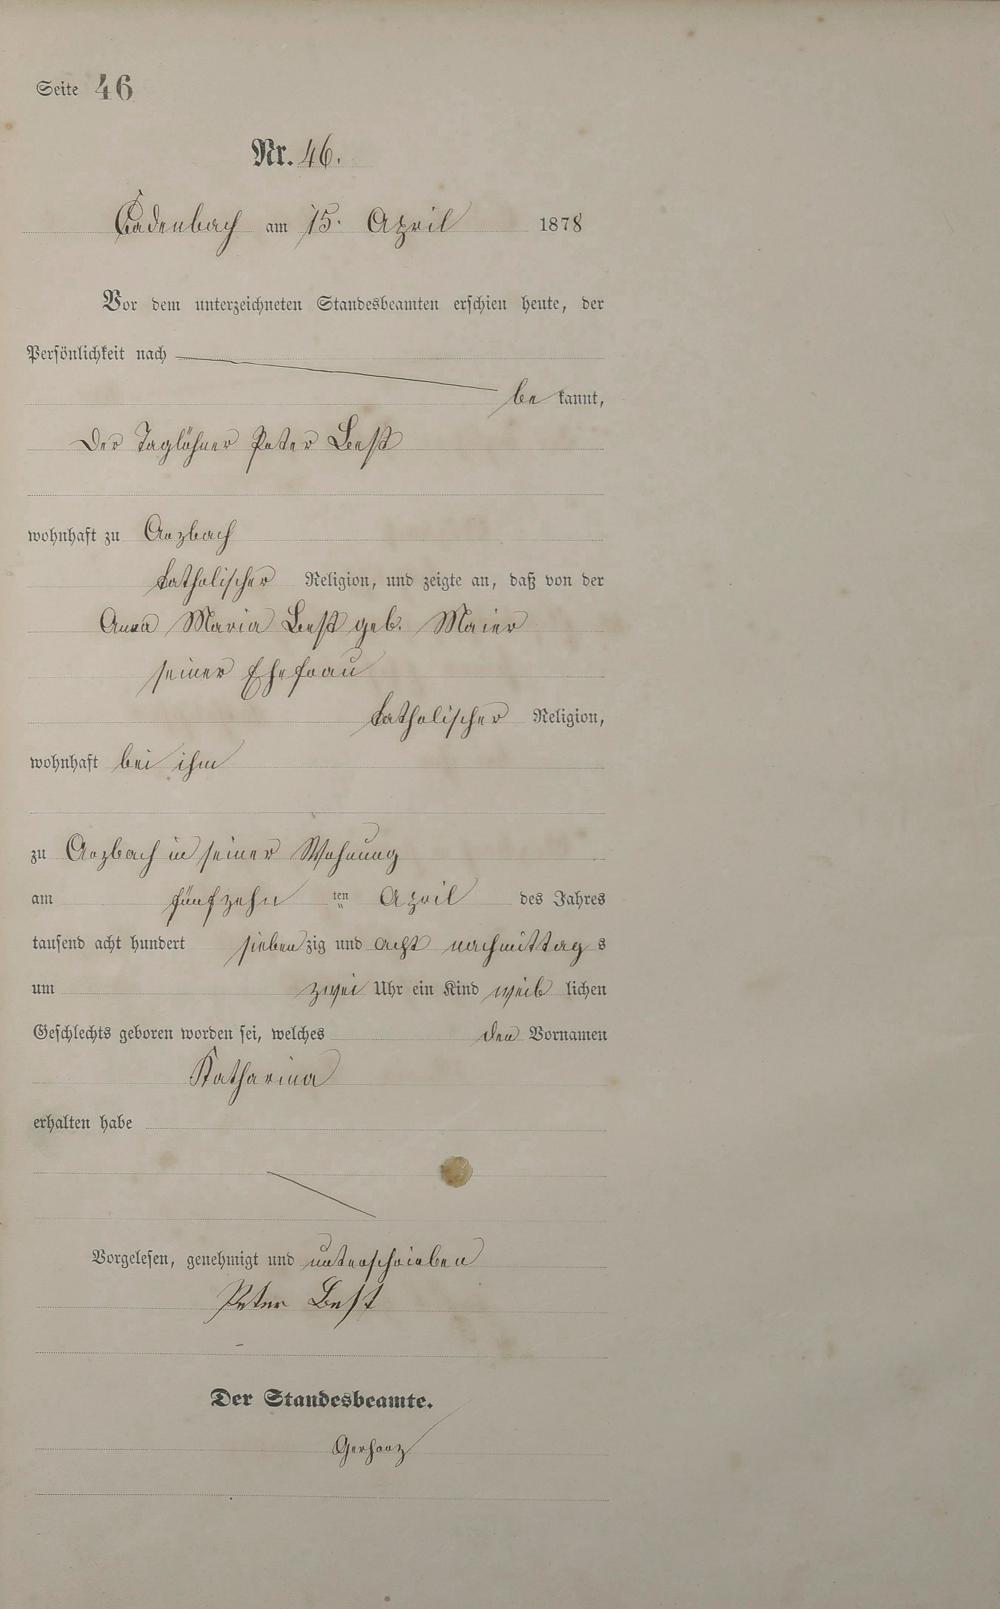 Seite 46
Nr. 46.
Cadenbach am 15. April 1878
Vor dem unterzeichneten Standesbeamten erschien heute, der
Persönlichkeit nach
be kannt,
Der Taglöhner Peter Best
wohnhaft zu Arzbach
katholischer Religion, und zeigte an, daß von der
Anna Maria Best geb. Maier
seiner Ehefrau
katholischer Religion,
wohnhaft bei ihm
zu Arzbach in seiner Wohnung
am fünfzehn ten April des Jahres
tausend acht hundert siebenzig und acht nachmittag s
um zwei Uhr ein Kind weib lichen
Geschlechts geboren worden sei, welches den Vornamen
Katharina
erhalten habe
Vorgelesen, genehmigt und unterschrieben
Peter Best
Der Standesbeamte.
Gerharz